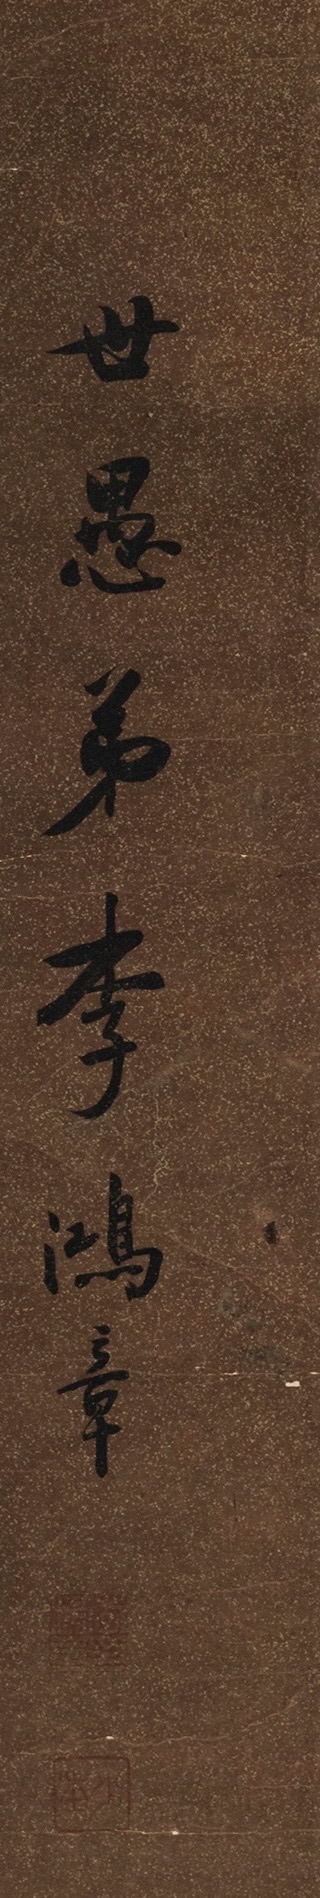 世愚弟李鴻章